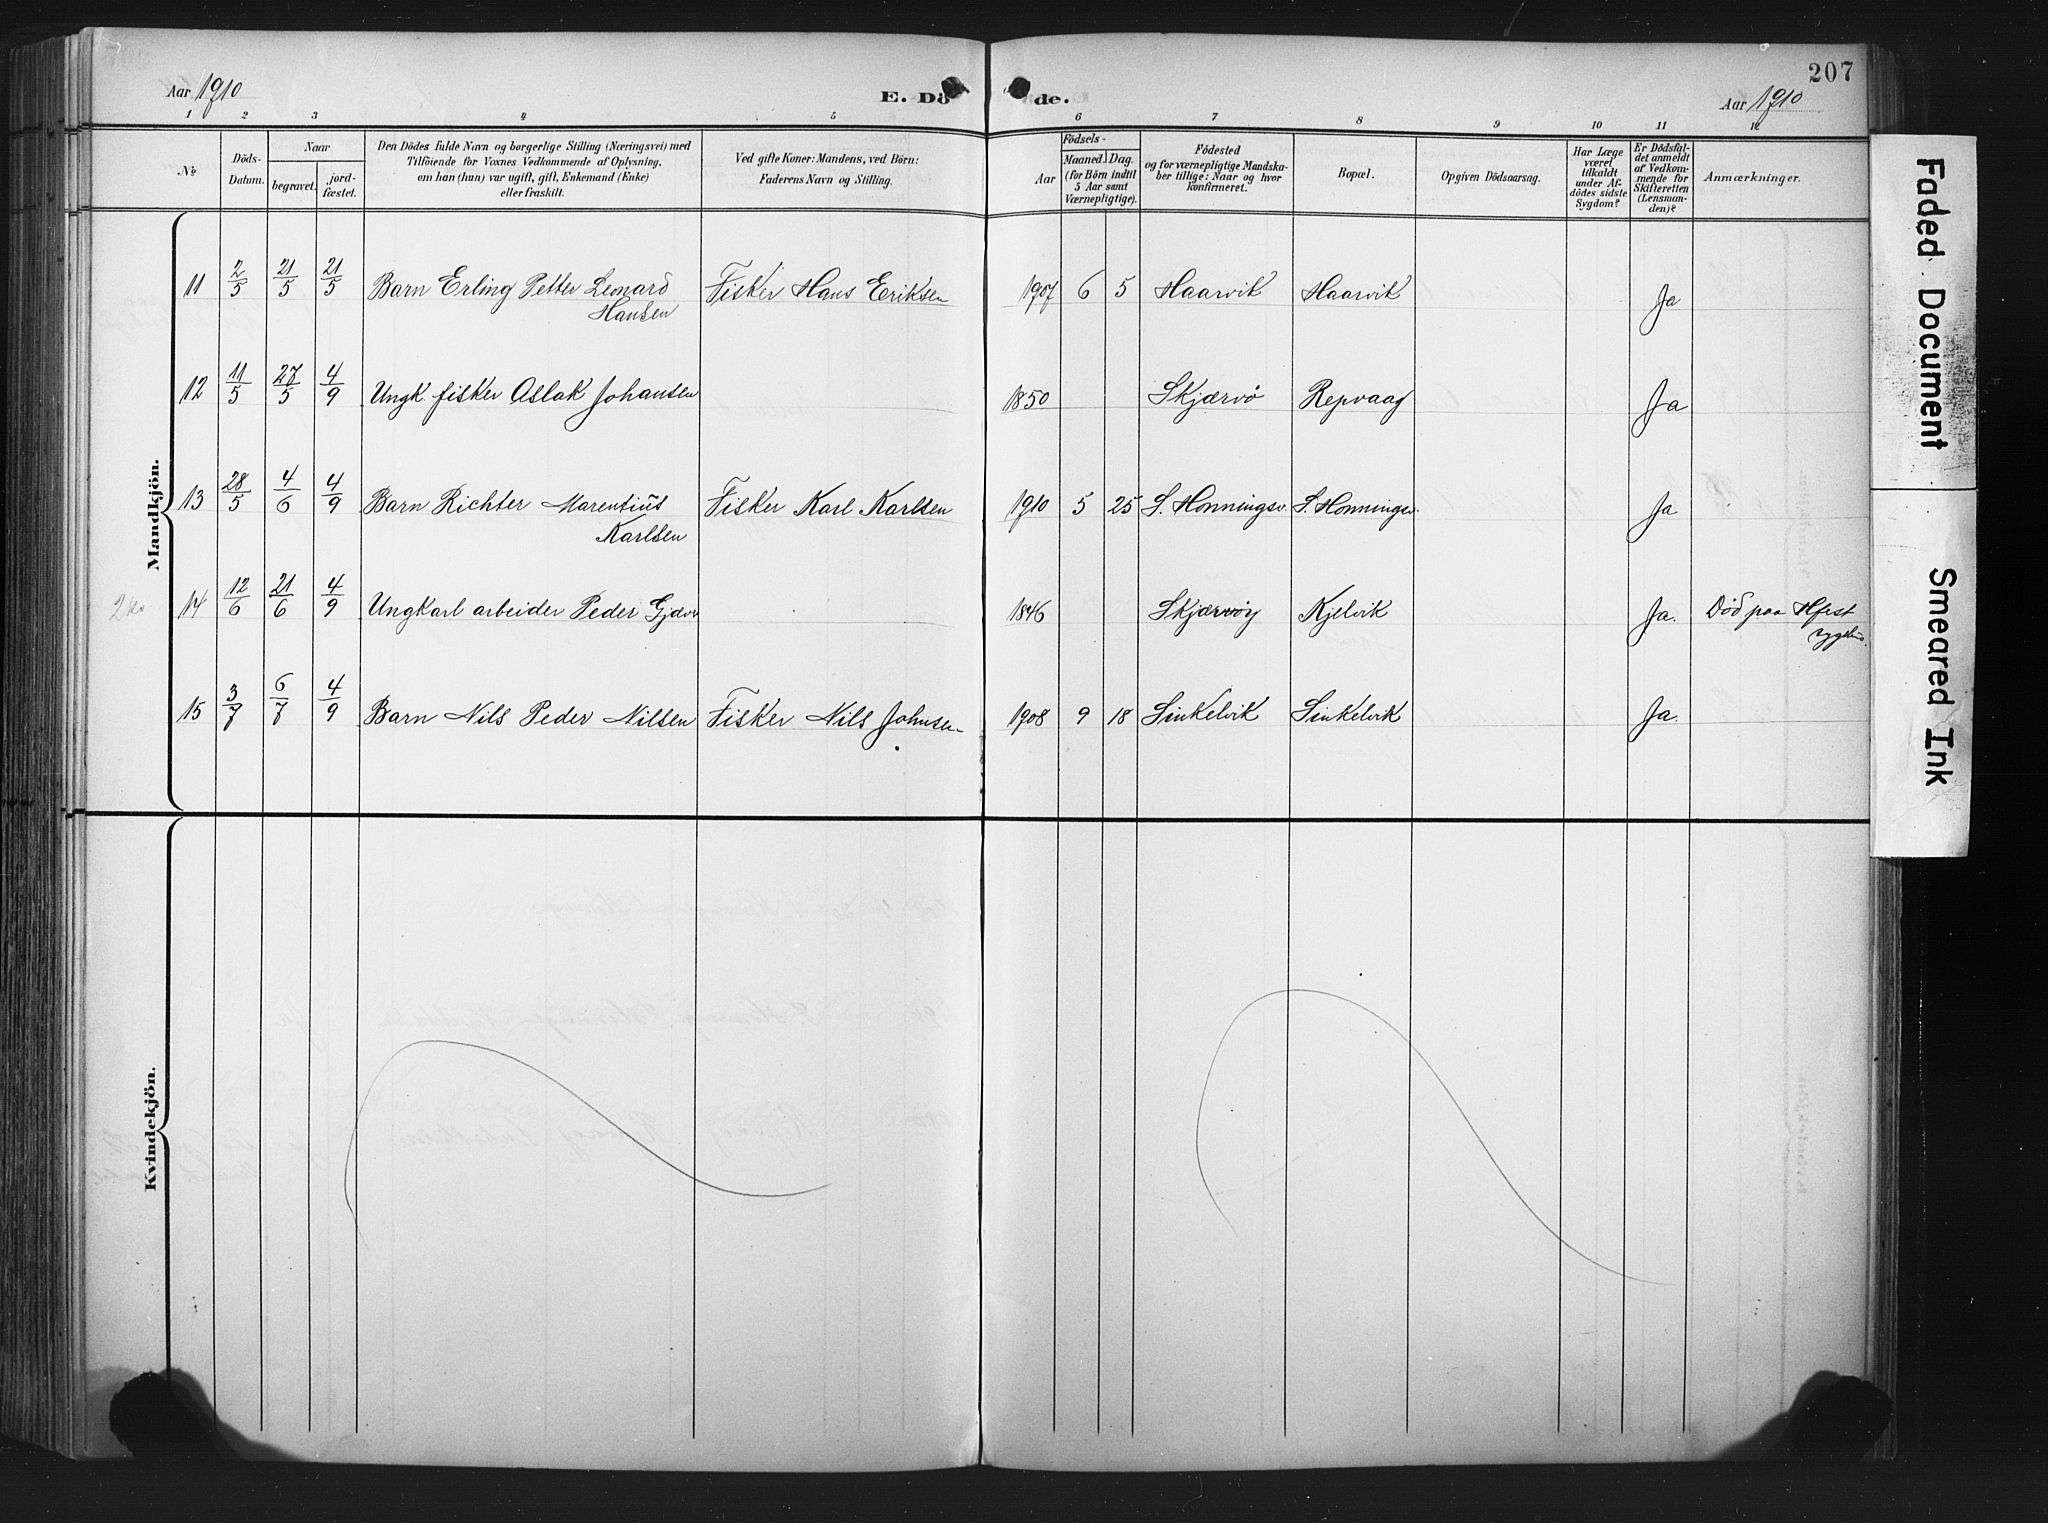 207
Aar 1910 E. Dö de. Aar 1910
1 2 3 4 5 6 7 8 9 10 11 12
№
Döds-Datum.
Naar
begravet. jord-fæstet.
Den Dödes fulde Navn og borgerlige Stilling (Næringsvei) med
Tilföiende for Voxnes Vedkommende af Oplysning,
om han (hun) var ugift, gift, Enkemand (Enke)
eller fraskilt.
Ved gifte Koner: Mandens, ved Börn:
Faderens Navn og Stilling.
Födsels-
Aar
Maaned. Dag.
(for Börn indtil
5 Aar samt
Værnepligtige).
Födested
og for værnepligtige Mandska-
ber tillige: Naar og hvor
konfirmeret.
Bopæl.
Opgiven Dödsaarsag.
Har Læge
været
tilkaldt
under Af-
dödes sidste
Sygdom?
Er Dödsfal-
det anmeldt
af Vedkom-
mende for
Skifteretten
(Lensman-
den)?
Anmærkninger.
Mandkjön.
11 2/5 21/5 21/5 Barn Erling Petter Leonard Fisker Hans Eriksen 1907 6 5 Haarvik Haarvik Ja
Hansen
12 11/5 27/5 4/9 Ungk. fisker Aslak Johansen 1850 Skjærvö Repvaag Ja
13 28/5 4/6 4/9 Barn Richter Marentius Fisker Karl Karlsen 1910 5 25 S. Honningsv. S. Honningsv. Ja
Karlsen
14 12/6 21/6 4/9 Ungkarl arbeider Peder Gjæver 1846 Skjærvöy Kjelvik Ja. Död paa Hfest
sygehus.
15 3/7 6/7 4/9 Barn Nils Peder Nilsen Fisker Nils Johnsen 1908 9 18 Sinkelvik Sinkelvik Ja.
Kvindekjön.
Faded Document
Smeared Ink